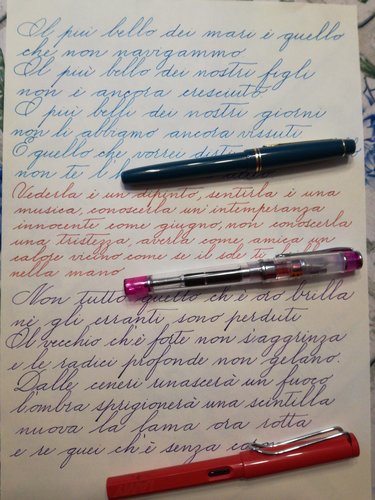 Il più bello dei mari è quello
che non navigammo
Il più bello dei nostri figli
non è ancora cresciuto
I più belli dei nostri giorni
non li abbiamo ancora vissuti
E quello che vorrei dirti
non te l'h
Vederla è un dipinto, sentirla è una
musica, conoscerla un'intemperanza
innocente come giugno, non conoscerla
una tristezza, averla come amica un
calore vicino come se il sole te
nella mano
Non tutto quello ch'è oro brilla
né gli erranti sono perduti
Il vecchio ch'è forte non s'aggrinza
e le radici profonde non gelano.
Dalle ceneri rinascerà un fuoco
l'ombra sprigionerà una scintilla
nuova la lama ora rotta
e re quei ch'è senza